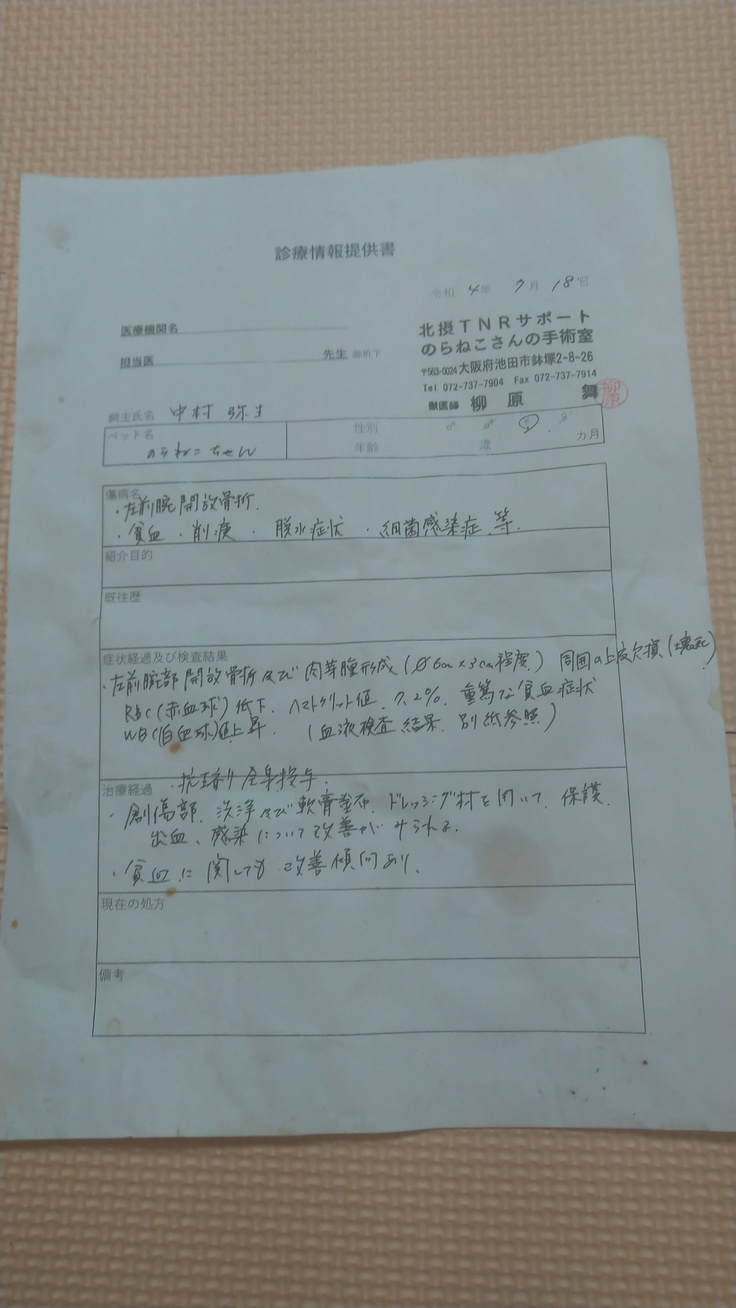 診療情報提供書
令和 4年 7月 18日
医療機関名
担当医 先生 御机下
北摂TNRサポート
のらねこさんの手術室
〒563-0024大阪府池田市鉢塚2-8-26
Tel 072-737-7904 Fax 072-737-7914
獣医師 柳原 舞
柳原
飼主氏名 中村
ペット名 のらねこちゃん
性別 ♂ ♀
年齢 歳 カ月
傷病名
・左前腕開放骨折.
・貧血 ・削痩 ・脱水症状 ・細菌感染症 等.
紹介目的
既往歴
症状経過及び検査結果
・左前腕部開放骨折及び肉芽腫形成(φ6cm×3cm程度) 周囲の上皮欠損(壊死)
RBC(赤血球)低下. ヘマトクリット値 7.2% 重篤な貧血症状
WBC(白血球)値上昇. (血液検査結果 別紙参照)
治療経過
・抗生剤全身投与.
・創傷部 洗浄及び軟膏塗布、ドレッシング材を用いて、保護.
出血、感染について改善がみられる.
・貧血に関しても改善傾向あり.
現在の処方
備考